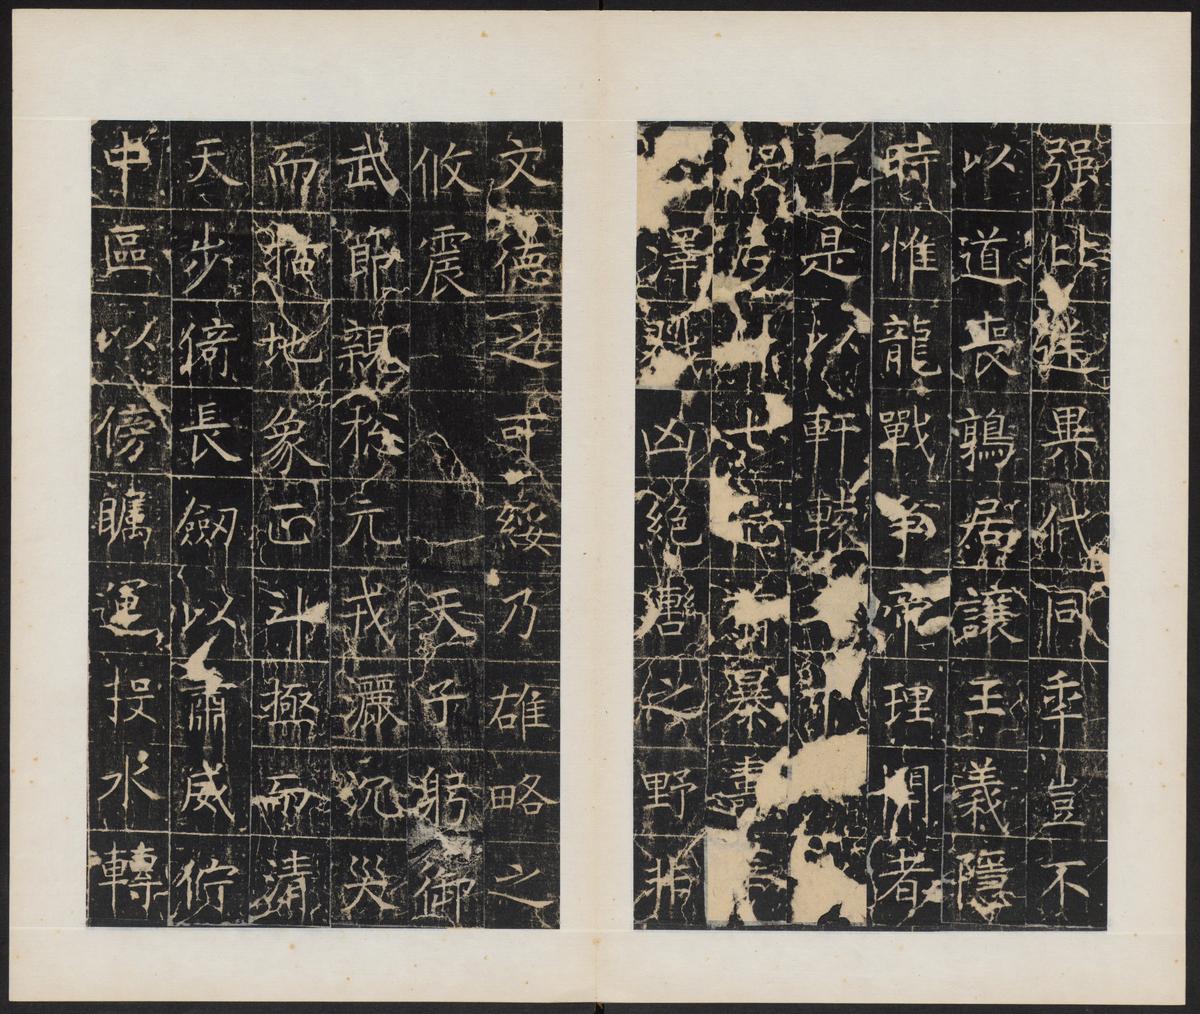 强比迹異代同乖豈不
以道喪鶉居讓王義隱
時惟龍戰爭帝理闡者
乎是以軒轅
七暴
澤凶絶轡之野
文德之可綏乃雄略之
攸震天子躬御
武節親揔元戎灑沉災
而臨地象正斗極而清
天步猗長劒以肅威佇
中區以傍矚運投水轉